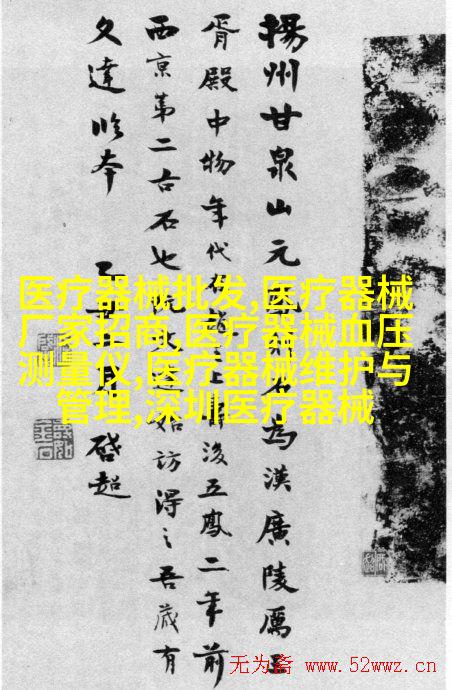 揚州甘泉山元石為漢廣陵厲王
胥殿中物年代在上後五鳳二年前
西京第二古石也阮文始訪得之吾藏有
文達本
啓超
医疗器械批发,医疗器械
厂家招商,医疗器械血压
测量仪,医疗器械维护与
管理,深圳医疗器械
无为斋 www.52wwz.cn